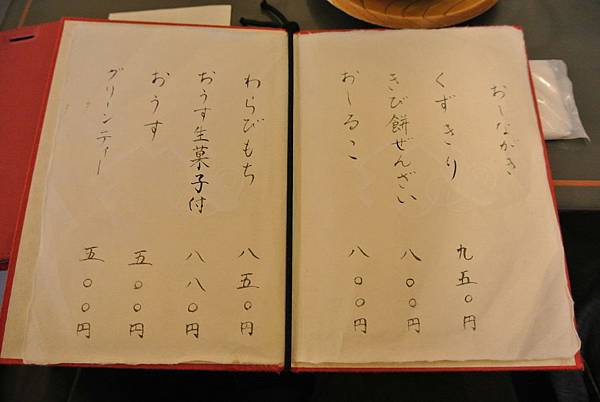 おしながき
くずきり 九五〇円
きび餅ぜんざい 八〇〇円
おしるこ 八〇〇円
わらびもち 八五〇円
おうす生菓子付 八八〇円
おうす 五〇〇円
グリーンティー 五〇〇円